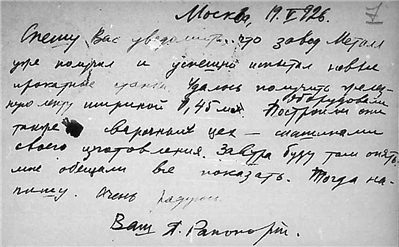 Москва, 19.V.926. 7
Спешу Вас уведомить что завод Металл
уже получил и успешно испытал новые
прокатные станки. Удалось получить
ную ленту шириной 0,45 мм. Оборудовали
Построили они
также сварочный цех — станками
своего изготовления. Завтра буду там опять
мне обещали все показать. Тогда на-
пишу. Очень
Ваш А. Рапопорт.